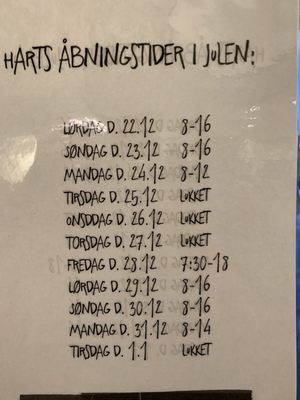 HARTS ÅBNINGSTIDER I JULEN:
LØRDAG D. 22.12 8-16
SØNDAG D. 23.12 8-16
MANDAG D. 24.12 8-12
TIRSDAG D. 25.12 LUKKET
ONSDDAG D. 26.12 LUKKET
TORSDAG D. 27.12 LUKKET
FREDAG D. 28.12 7:30-18
LØRDAG D. 29.12 8-16
SØNDAG D. 30.12 8-16
MANDAG D. 31.12 8-14
TIRSDAG D. 1.1 LUKKET